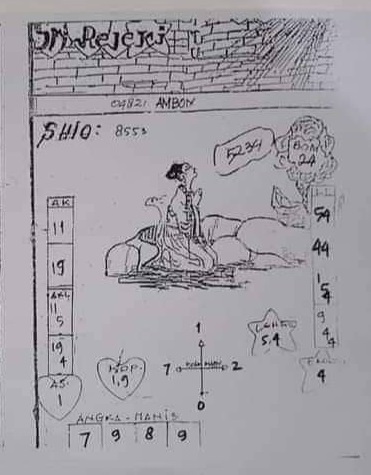 Sri Rejeki
04821 AMBON
SHIO: 8553
5234
BOM
24
AK
11
19
AKL
11
5
19
4
AS
1
KOP
1,9
1
7
2
0
54
44
1
54
9
4
4
5,4
4
ANGKA-MANIS
7 9 8 9